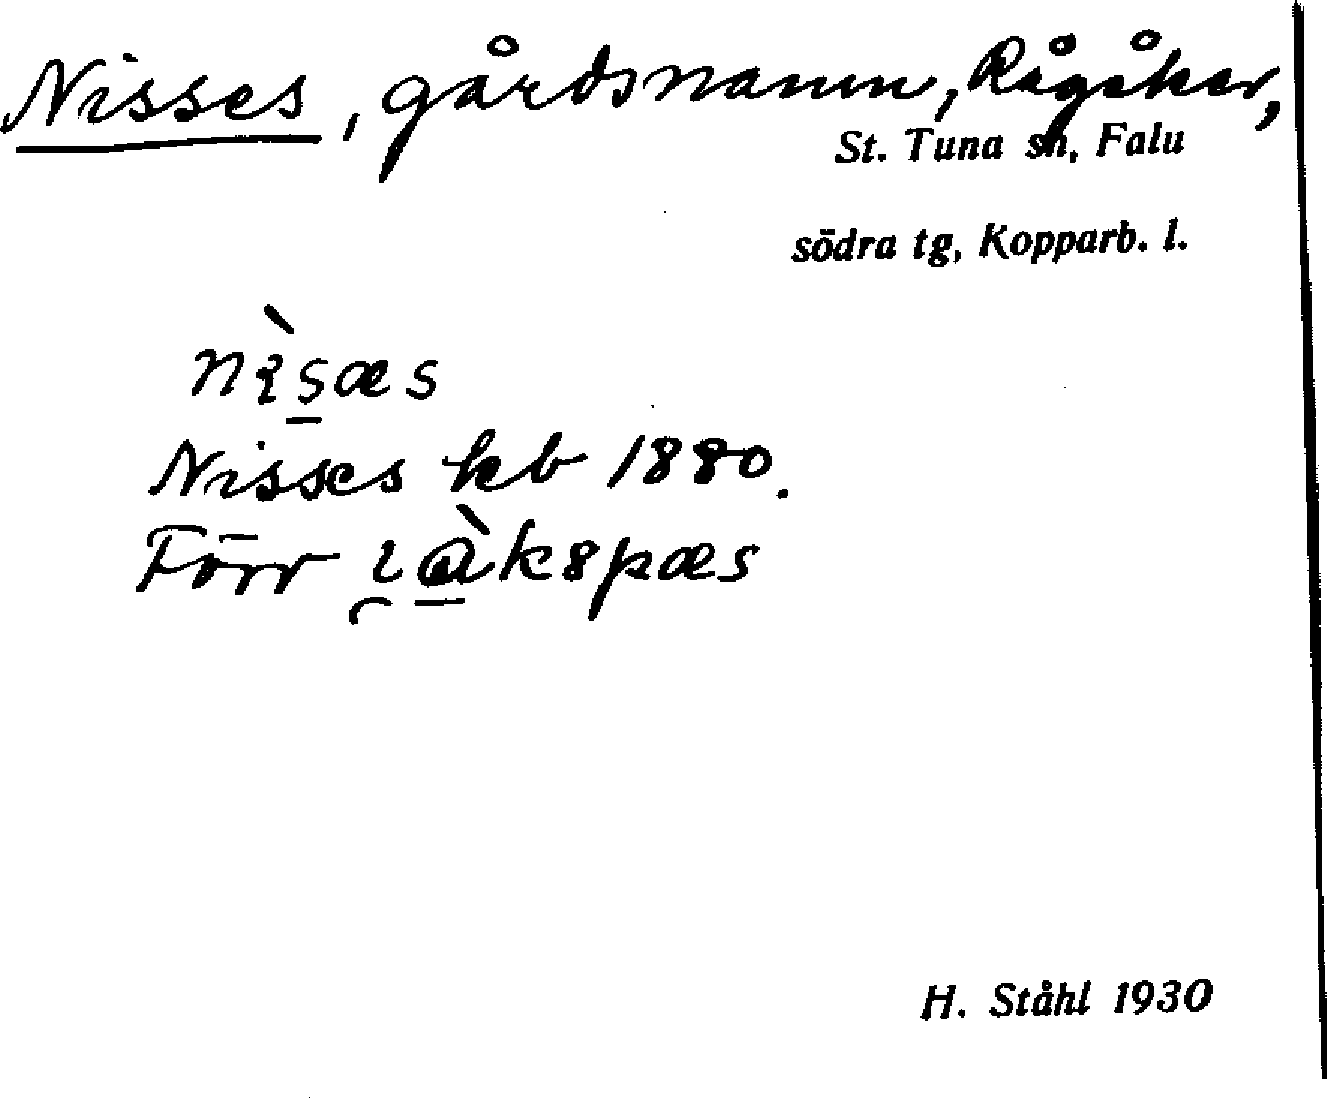 Nisses, gårdsnamn, Rågåker,
St. Tuna sn, Falu
södra tg, Kopparb. l.
nìsæs
Nisses kb 1880.
Förr
H. Ståhl 1930